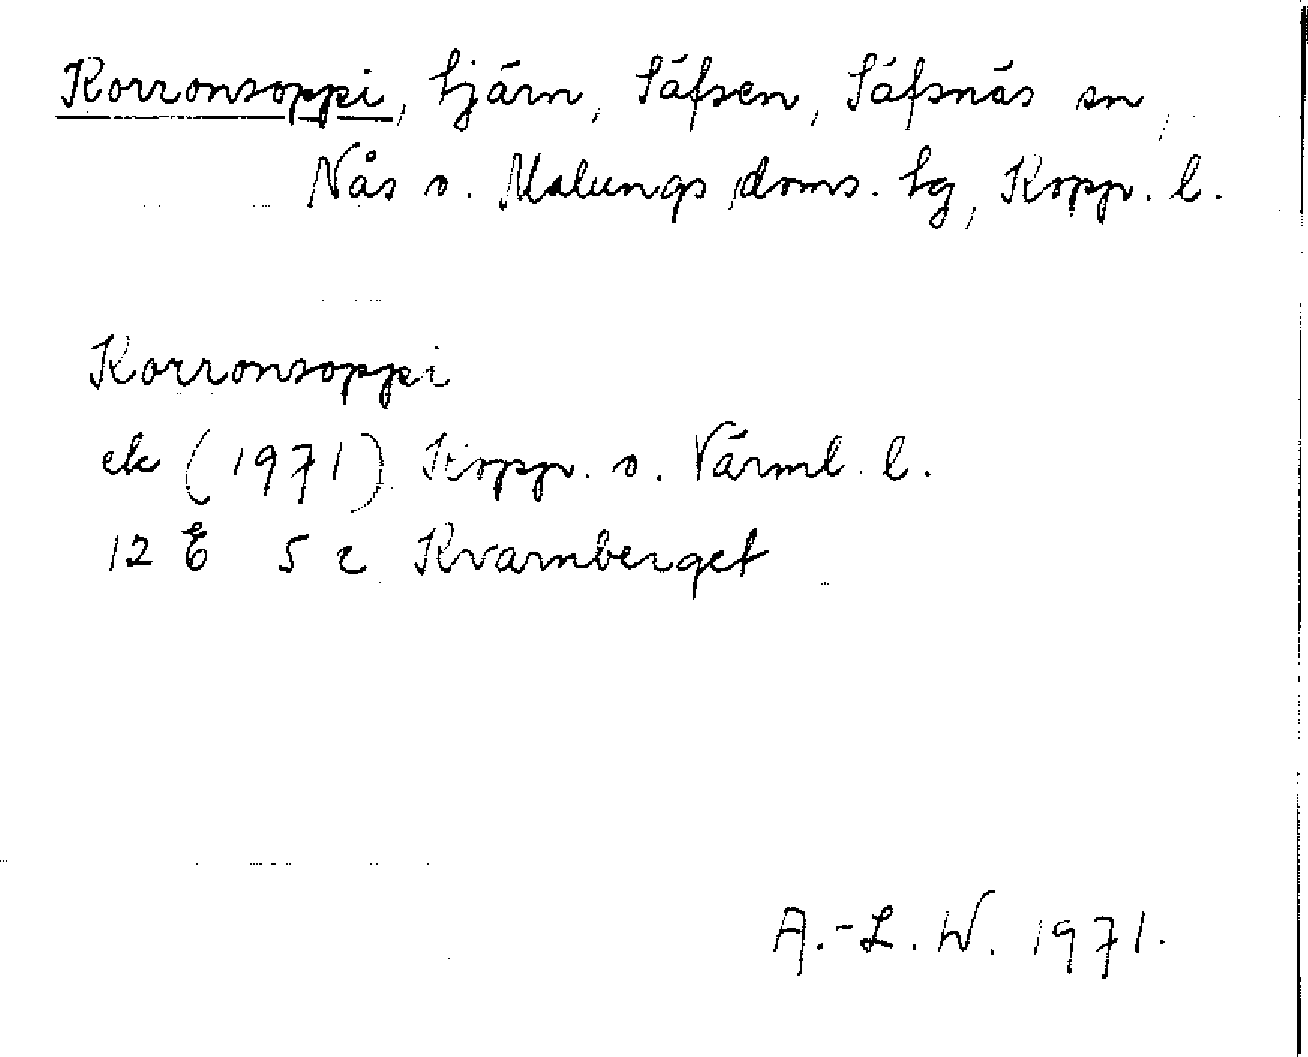 Korronsoppi, tjärn, Säfsen, Säfsnäs sn,
Nås o. Malungs doms. tg, Kopp. l.
Korronsoppi
ek (1971) Kopp. o. Värml. l.
12 E 5 c Kvarnberget
A.-L. W. 1971.